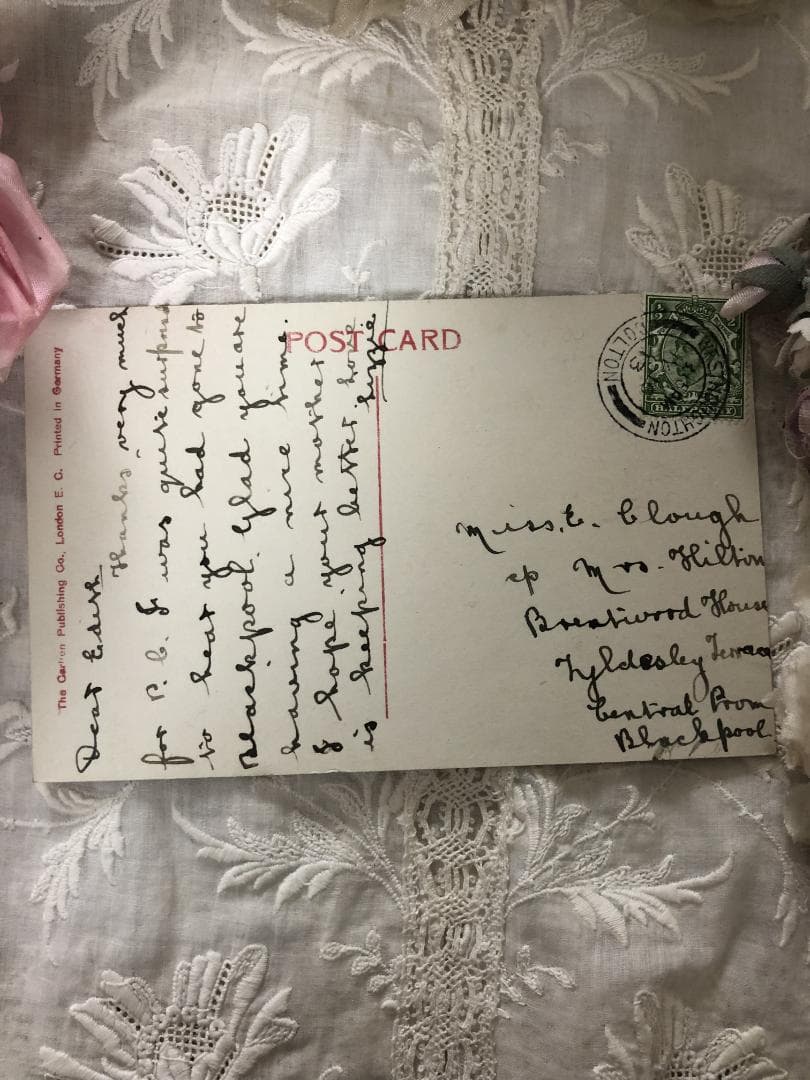 POST CARD
The Carlton Publishing Co., London E. C. Printed in Germany
Dear Edith
Thanks very much
for P. C. I was quite surprised
to hear you had gone to
Blackpool. Glad you are
having a nice time.
I hope your mother
is keeping better. love
Lizzie
Miss. E. Clough
Mrs. Hilton
Brentwood House
Tyldesley Terrace
Central Prom
Blackpool
BOLTON